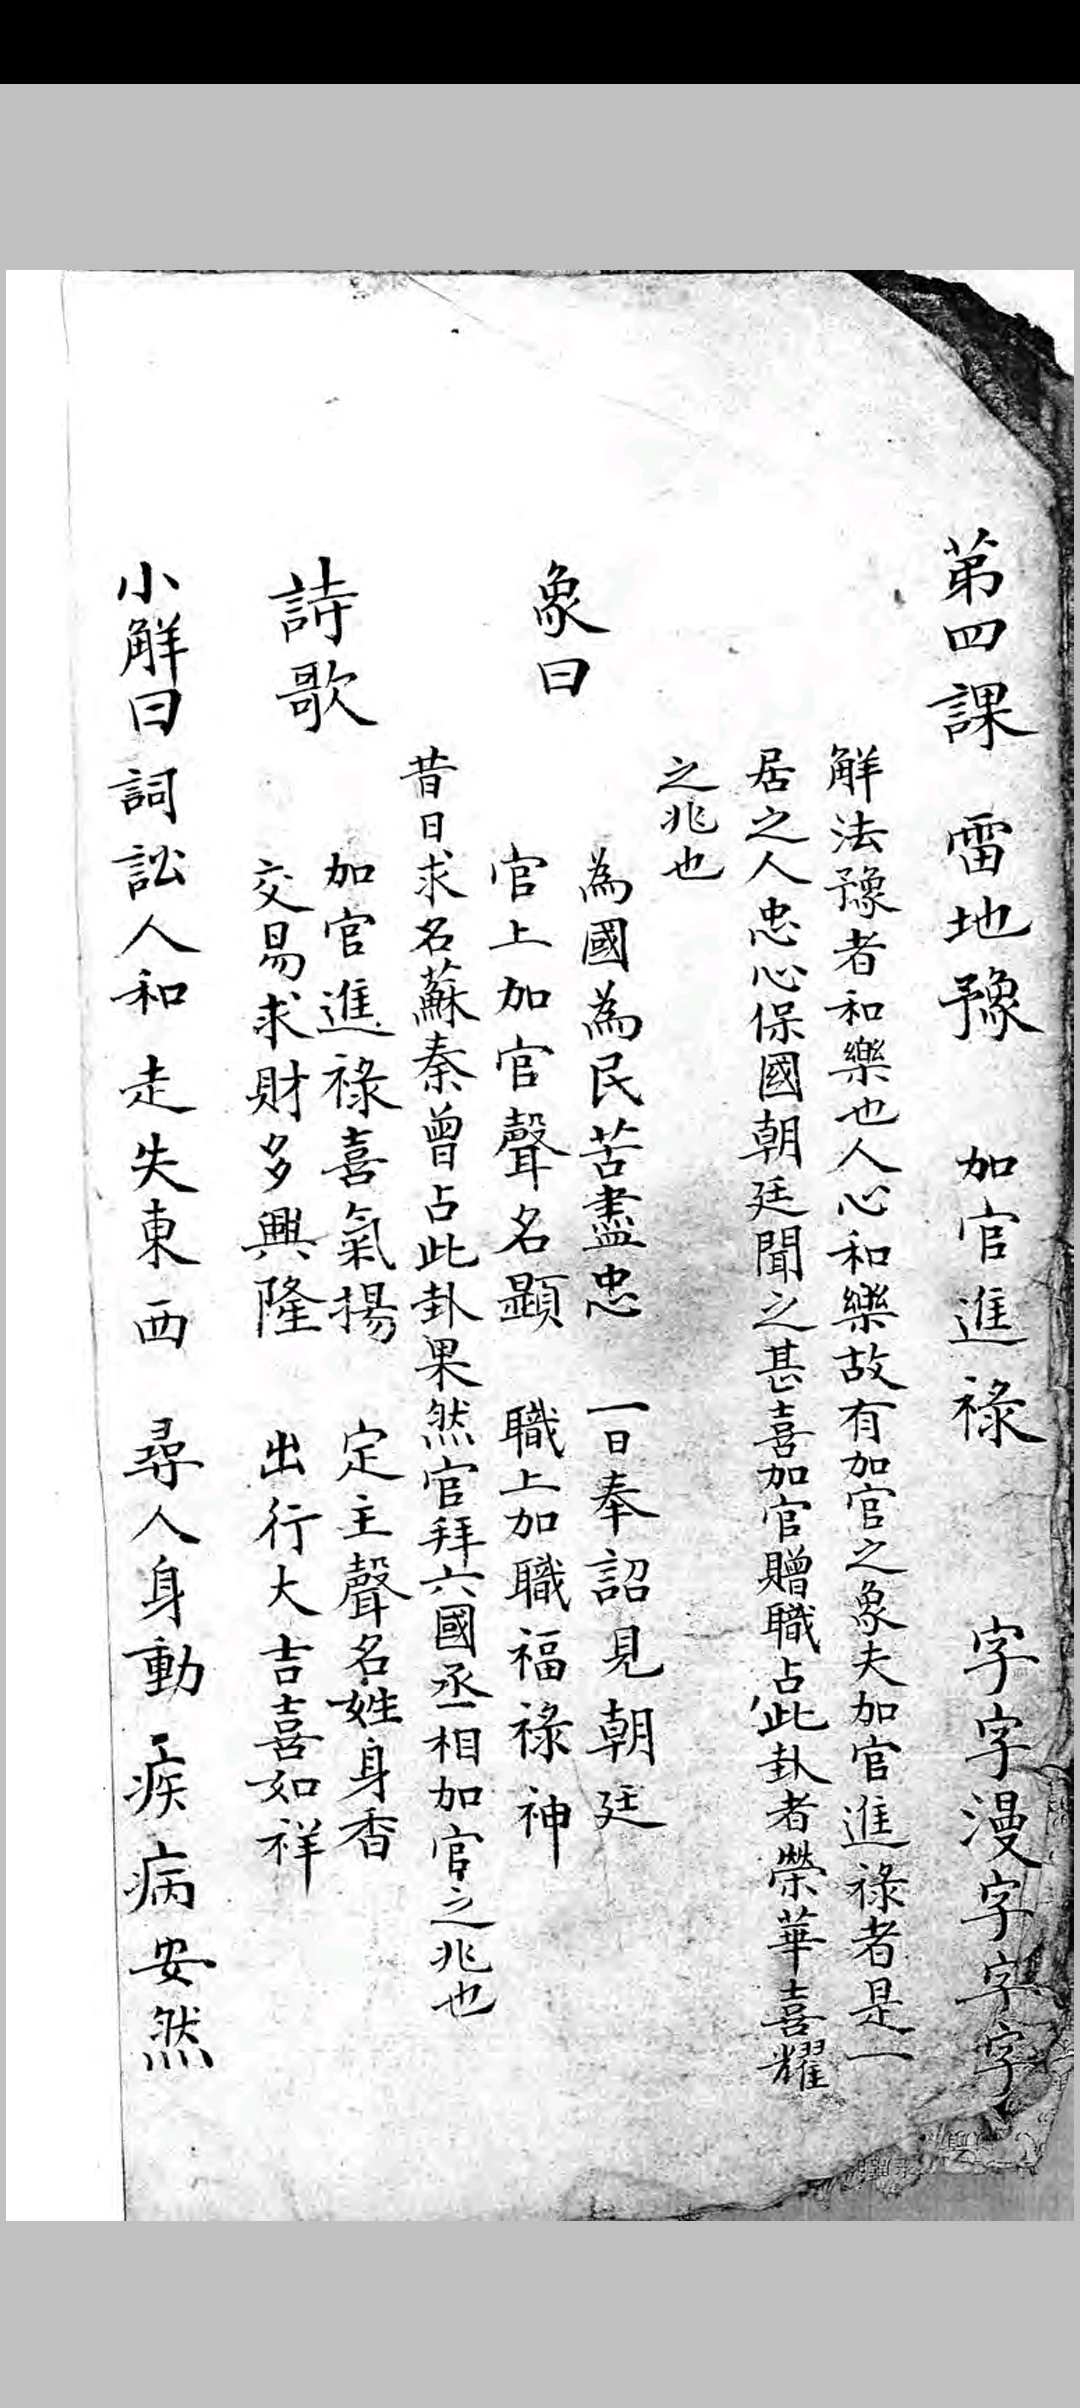 第四課　雷地豫　加官進祿　字字漫字字字
解法豫者和樂也人心和樂故有加官之象夫加官進祿者是一
居之人忠心保國朝廷聞之甚喜加官贈職占此卦者榮華喜耀
之兆也
象曰
為國為民苦盡忠　一日奉詔見朝廷
官上加官聲名顯　職上加職福祿神
昔日求名蘇秦曾占此卦果然官拜六國丞相加官之兆也
詩歌
加官進祿喜氣揚　定主聲名姓身香
交易求財多興隆　出行大吉喜如祥
小解曰　詞訟人和　走失東西　尋人身動　疾病安然